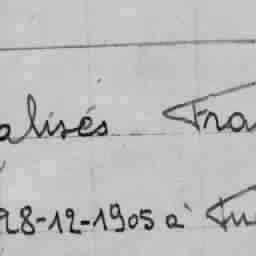 alisés Fra
28-12-1905 à